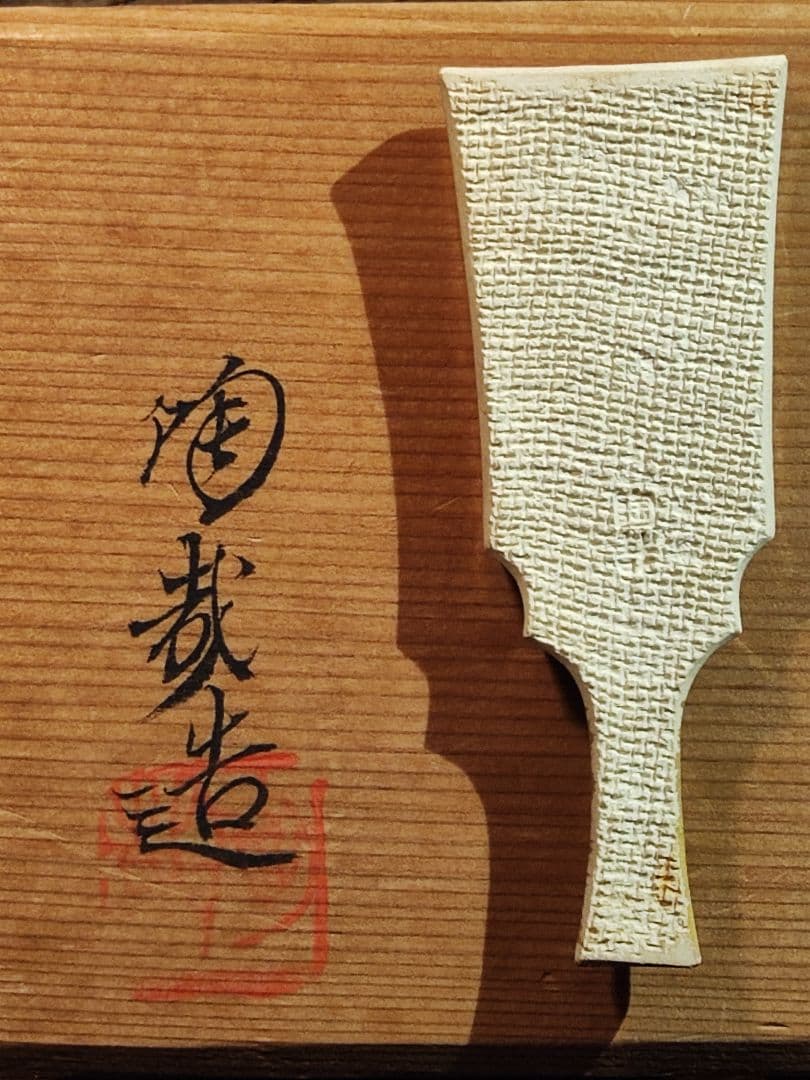 陶哉造